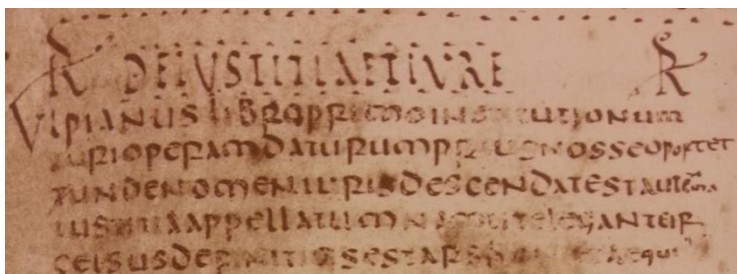 R DEIUSTITIAETIURE R
VLPIANUSLIBROPRIMOINSTITUTIONUM
IURIOPERAMDATURUMPRIUSNOSSEOPORTET
UNDENOMENIURISDESCENDATESTAUTEMA
IUSTITIAAPPELLATUMNAMUTELEGANTER
CELSUSDEFINITIUSESTARS AEQUI